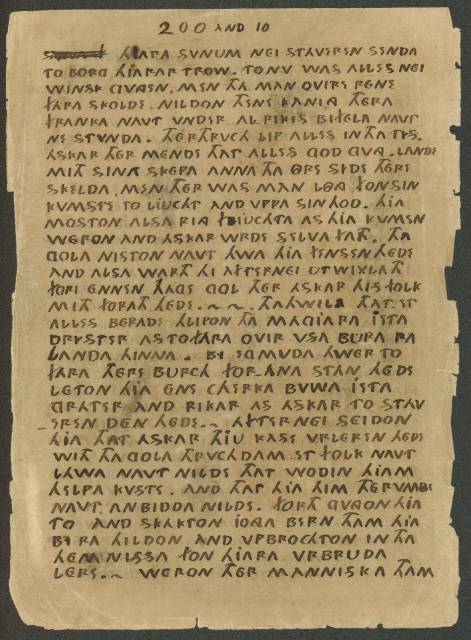 200 AND 10
HJARA SVNUM NEI STAVEREN SENDA
TO BORG HJARAR TROW. TO NV WAS ALLES NEI
WINSK GVNGEN, MEN THA MAN OVIR ENE
FARA SKOLDE. NILDON THENE KANING THERA
FRANKA NAVT VNDER AL RIKIS BITHELA NAVT
NE STVNDA. THERTHRVCH LIP ALLES IN THA TYS.
ASKAR THER MENDE THAT ALLES GOD GVNG. LANDE
MITH SINA SKEPA ANNA THA ORE SYDE THERE
SKELDA, MEN THER WAS MAN LONG FON SIN
KVMSTE TO LJUCHT AND VPPA SIN HOD. HJA
MOSTON ALSA RING FLJUCHTA AS HJA KVMEN
WERON AND ASKAR WRDE SELVA FATH. THA
GOLA NISTON NAVT HWA HJA FENSEN HEDE
AND ALSA WARTH HI AFTERNEI UTWIXLATH
FORI ENNEN HAGE GOL THER ASKAR HIS FOLK
MITH FORATH HEDE. ~ ~. THAHWILA THAT ET
ALLES BERADE HLIPON THA MAGJARA JETA
DRYSTER AS TO FARA OVIR VSA BURA RA
LANDA HINNA. BY EGMUDA HWER TO
FARA THERE BURCH FORANA STAN HEDE
LETON HJA ENE CHERKA BVWA JETA
GRATER AND RIKAR AS ASKAR TO STAV
EREN DEN HEDE. ~ AFTERNEI SEIDON
HJA THAT ASKAR THJU KASE VRLEREN HEDE
WITH THA GOLA THRVCHDAM ET FOLK NAVT
LAWA NAVT NILDE THAT WODIN HJAM
HELPA KVSTE. AND THAT HJA HIM THERVMBE
NAVT ANBIDDA NILDE. FORTH GVNGON HJA
TO AND SKAKTON JONGA BERN THAM HJA
BY RA HILDON AND VPBROCHTON IN THA
HEMNISSA FON HJARA VRBRUDA
LERE. ~ WERON THER MANNISKA THAM